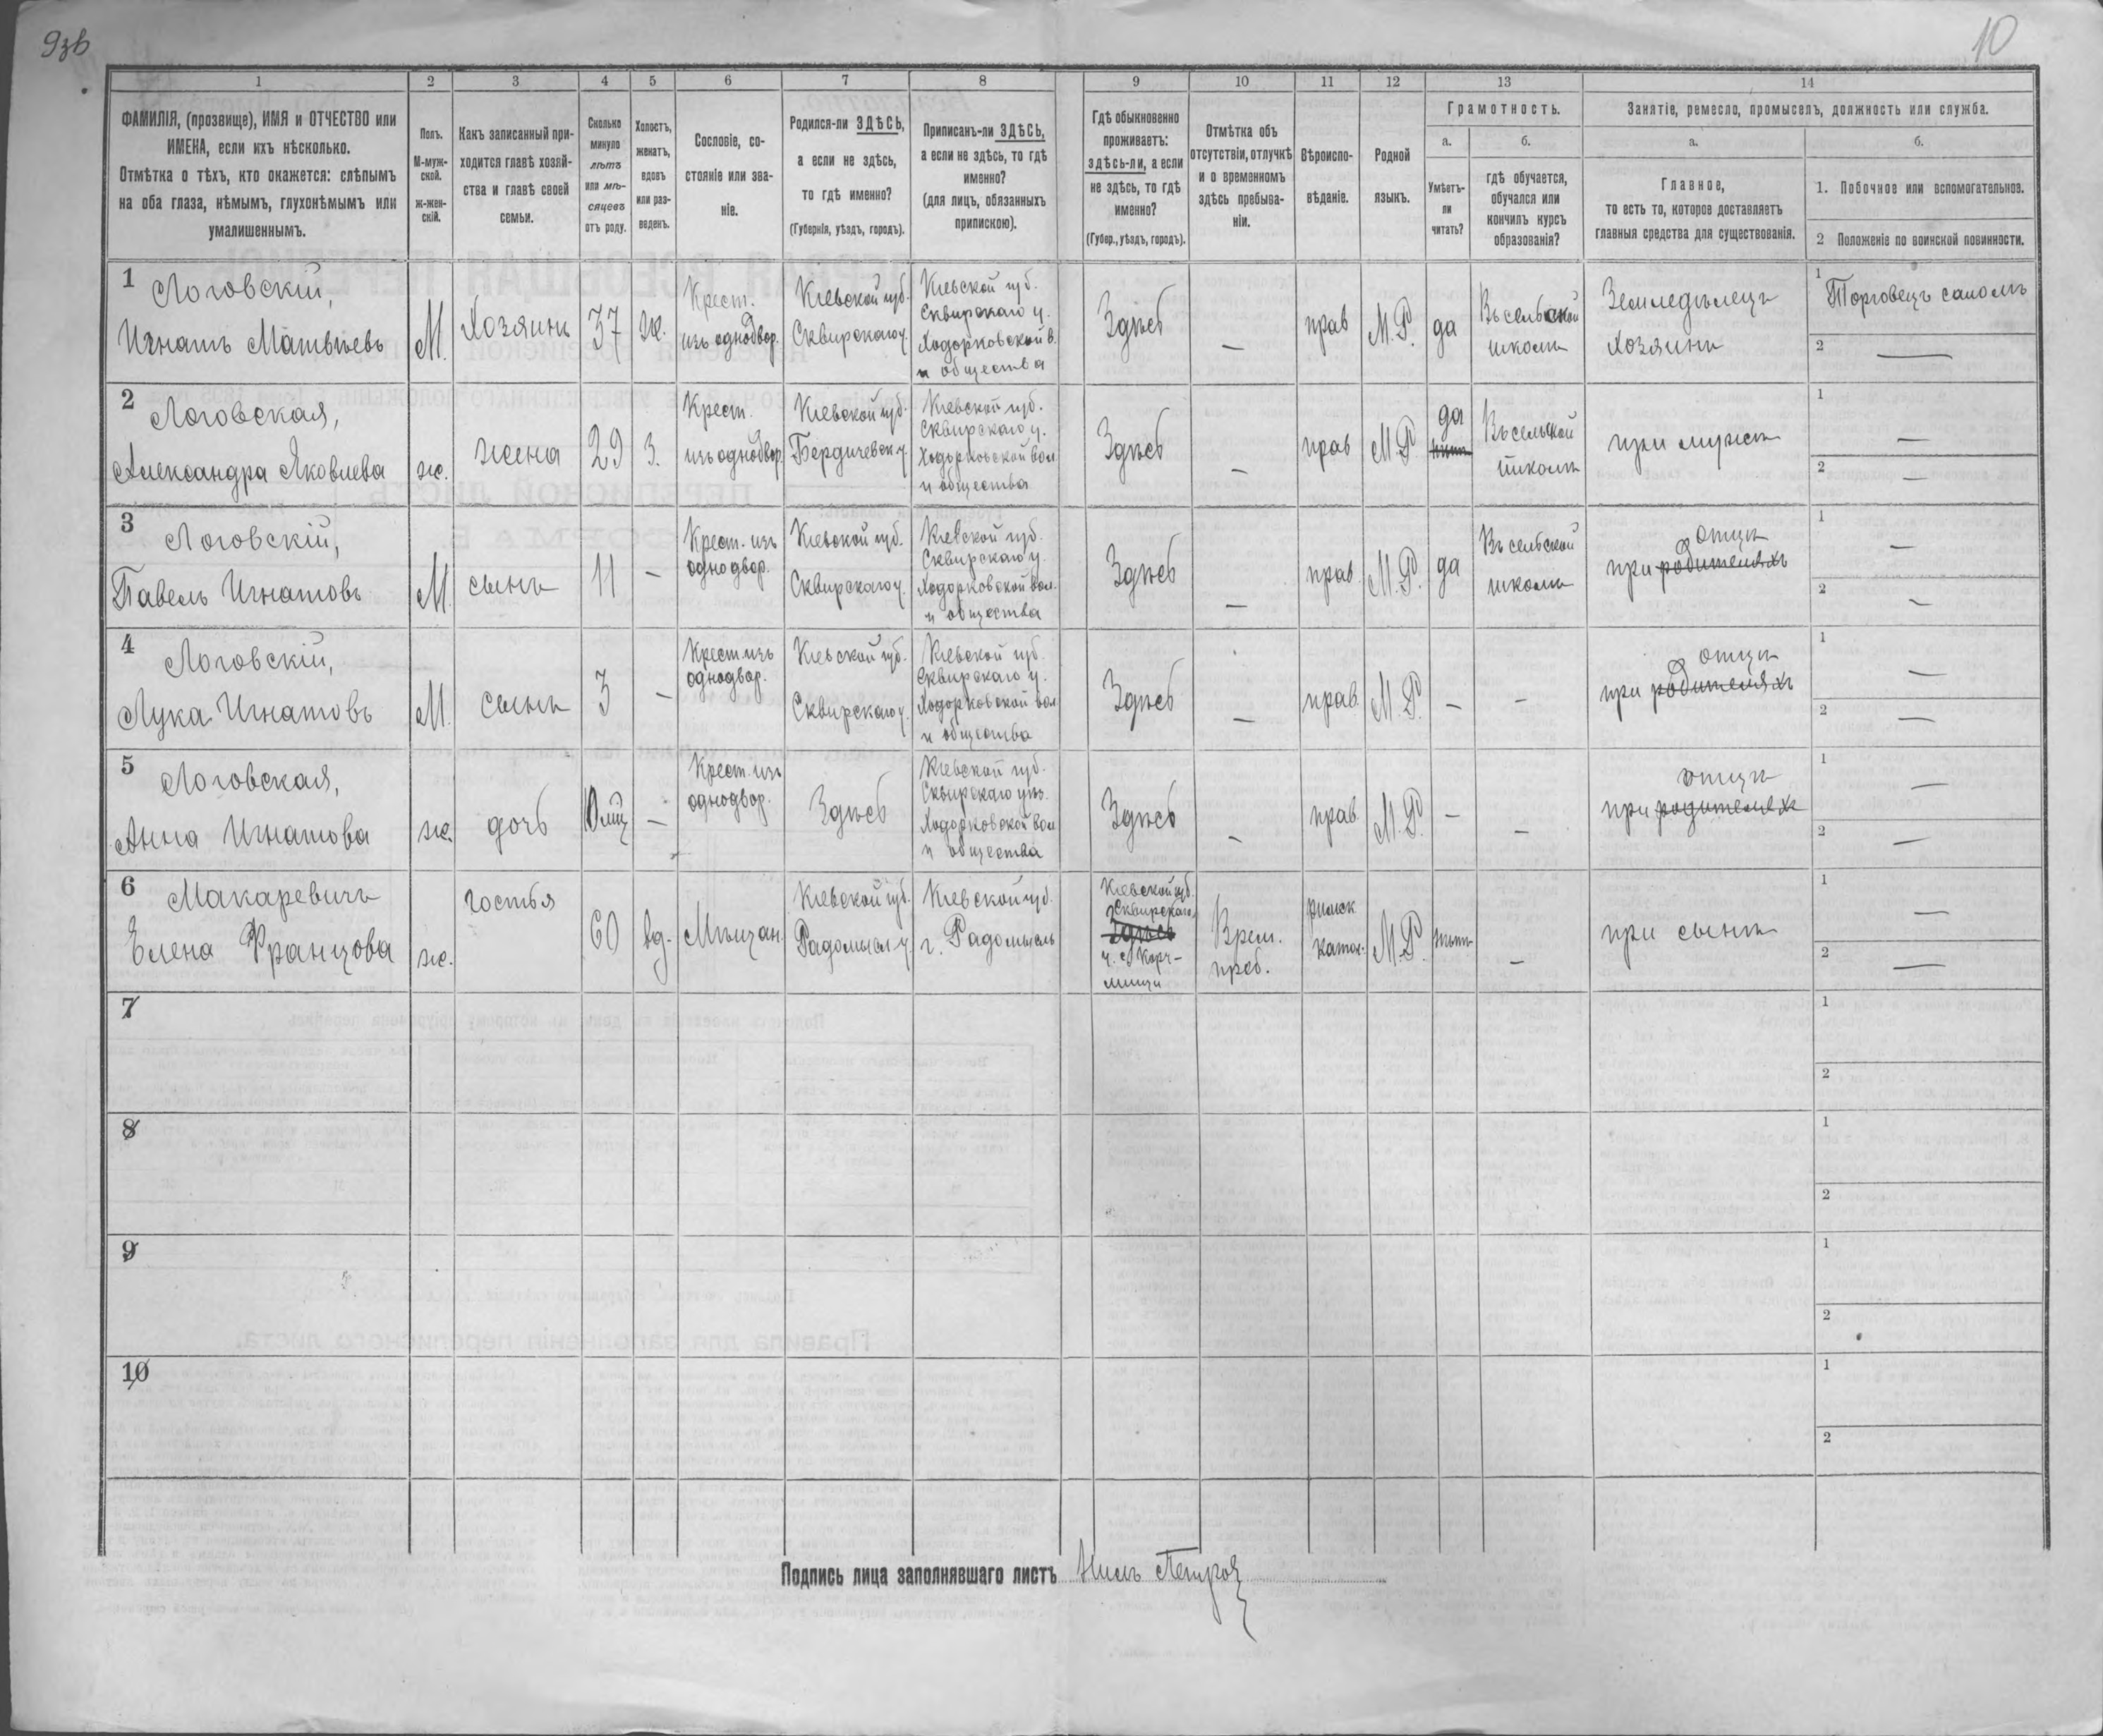 93в
10
1 2 3 4 5 6 7 8 9 10 11 12 13 14
ФАМИЛІЯ, (прозвище), ИМЯ и ОТЧЕСТВО или
ИМЕНА, если ихъ нѣсколько.
Отмѣтка о тѣхъ, кто окажется: слѣпымъ
на оба глаза, нѣмымъ, глухонѣмымъ или
умалишеннымъ.
Полъ.
М-муж-
ской.
Ж-жен-
скій.
Какъ записанный при-
ходится главѣ хозяй-
ства и главѣ своей
семьи.
Сколько
минуло
лѣтъ
или мѣ-
сяцевъ
отъ роду.
Холостъ,
женатъ,
вдовъ
или раз-
веденъ.
Сословіе, со-
стояніе или зва-
ніе.
Родился-ли ЗДѢСЬ,
а если не здѣсь,
то гдѣ именно?
(Губернія, уѣздъ, городъ).
Приписанъ-ли ЗДѢСЬ,
а если не здѣсь, то гдѣ
именно?
(для лицъ, обязанныхъ
припискою).
Гдѣ обыкновенно
проживаетъ:
здѣсь-ли, а если
не здѣсь, то гдѣ
именно?
(Губер., уѣздъ, городъ).
Отмѣтка объ
отсутствіи, отлучкѣ
и о временномъ
здѣсь пребыва-
ніи.
Вѣроиспо-
вѣданіе.
Родной
языкъ.
Грамотность.
а.
Умѣетъ-
ли
читать?
б.
гдѣ обучается,
обучался или
кончилъ курсъ
образованія?
Занятіе, ремесло, промыселъ, должность или служба.
а.
Главное,
то есть то, которое доставляетъ
главныя средства для существованія.
б.
1. Побочное или вспомогательное.
2 Положеніе по воинской повинности.
1
Логовскій,
Игнатъ Матвѣевъ
М.
Хозяинъ
37
Ж.
Крест.
изъ однодвор.
Кіевской губ.
Сквирскаго у.
Кіевской губ.
Сквирскаго у.
Ходорковской в.
и общества
Здѣсь
—
прав
М.Р.
да
Въ сельской
школѣ
Земледѣлецъ
хозяинъ
1
Торговецъ саломъ
2 —
2
Логовская,
Александра Яковлева
ж.
жена
29
З.
Крест.
изъ однодвор.
Кіевской губ.
Бердичевск. у.
Кіевской губ.
Сквирскаго у.
Ходорковской вол.
и общества
Здѣсь
—
прав
М.Р.
да
нѣтъ
Въ сельской
школѣ
при мужѣ
1 —
2 —
3
Логовскій,
Павелъ Игнатовъ
М.
сынъ
11
—
Крест. изъ
однодвор.
Кіевской губ.
Сквирскаго у.
Кіевской губ.
Сквирскаго у.
Ходорковской вол.
и общества
Здѣсь
—
прав.
М.Р.
да
Въ сельской
школѣ
отцѣ
при родителяхъ
1 —
2 —
4
Логовскій,
Лука Игнатовъ
М.
сынъ
3
—
Крест. изъ
однодвор.
Кіевской губ.
Сквирскаго у.
Кіевской губ.
Сквирскаго у.
Ходорковской вол
и общества
Здѣсь
—
прав.
М.Р.
—
—
отцѣ
при родителяхъ
1 —
2 —
5
Логовская,
Анна Игнатова
ж.
дочь
—
Крест. изъ
однодвор.
Здѣсь
Кіевской губ.
Сквирскаго уѣз.
Ходорковской вол
и общества
Здѣсь
—
прав.
М.Р.
—
—
отцѣ
при родителяхъ
1 —
2 —
6
Макаревичъ
Елена Францова
ж.
гостья
60
вд.
Мѣщан.
Кіевской губ.
Радомысл. у.
Кіевской губ.
г. Радомысль
Кіевской губ.
Сквирскаго
Здѣсь
у. с. Корч-
мищи
Врем.
преб.
римск
катол.
М.Р.
нѣтъ
—
при сынѣ
1 —
2 —
7
1
2
8
1
2
9
1
2
10
1
2
Подпись лица заполнявшаго листъ